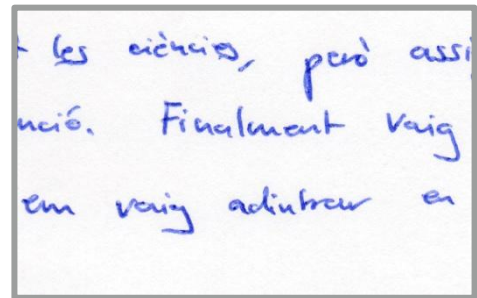 t les ciències, però assi
nció. Finalment vaig
em vaig adintrar en